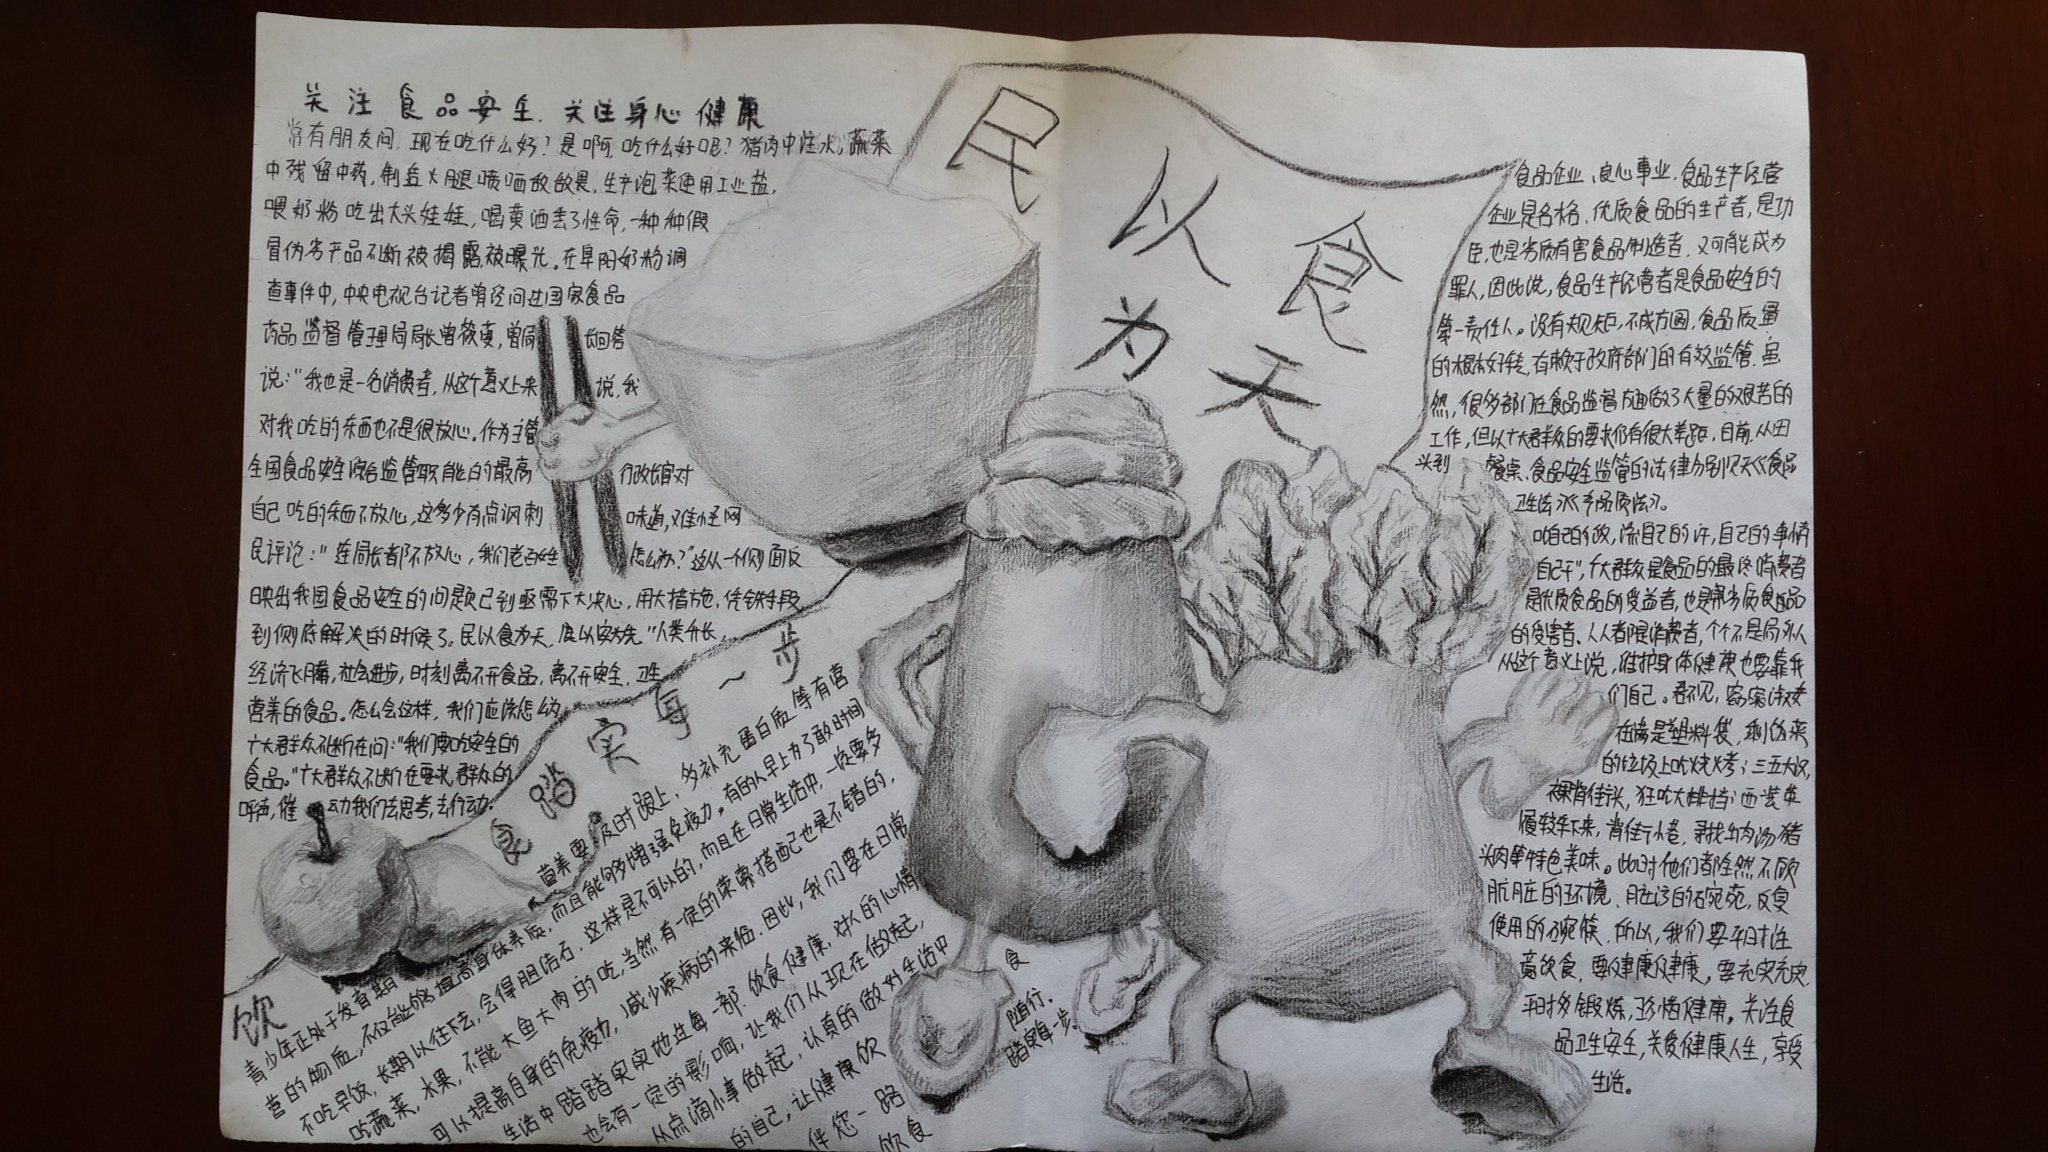 关注食品安全、关注身心健康
常有朋友问,现在吃什么好?是啊,吃什么好呢?猪肉中注水,蔬菜
中残留中药,制盖火腿喷洒敌敌畏,生产泡菜使用工业盐,
喂奶粉吃出大头娃娃,喝黄酒丢了性命,一种种假
冒伪劣产品不断被揭露被曝光。在阜阳奶粉调
查事件中,中央电视台记者曾经问过国家食品
药品监督管理局局长曾筱萸,曾局长回答
说:"我也是一名消费者,从这个意义上来说,我
对我吃的东西也不是很放心。作为主管
全国食品安全综合监管职能的最高行政长官对
自己吃的东西不放心,这多少有点讽刺味道,难怪网
民评论:"连局长都不放心,我们老百姓怎么办?"这从一个侧面反
映出我国食品安全的问题已到亟需下大决心,用大措施、凭铁手段
到彻底解决的时候了。民以食为天,食以安为先"人类升长,
经济长腾,社会进步,时刻离不开食品,离不开安全、卫生
营养的食品。怎么会这样,我们应该怎么办
广大群众不断在问:"我们要吃安全的
食品。"广大群众不断在要求,群众的
呼声,催动我们去思考,去行动。
民以食为天
食品企业、良心事业,食品生产经营
企业是名格、优质食品的生产者,是功
臣,也是劣质有害食品制造者,又可能成为
罪人,因此说,食品生产经营者是食品安全的
第一责任人。没有规矩,不成方圆,食品质量
的根本好转,有赖于政府部门的有效监管,虽
然,很多部门在食品监督方面做了大量的艰苦的
工作,但以广大群众的要求仍有很大差距,目前,从田
头到餐桌、食品安全监管的法律分别见天《食品
卫生法》《产品质法》。
吃自己的饭,流自己的汗,自己的事情
自己干",广大群众是食品的最终消费者
是优质食品的受益者,也是劣质食品
的受害者、人人都是消费者,个个不是局外人
从这个意义上说,维护身体健康也要靠我
们自己。君不见,
在满是塑料袋,剩饭菜
的垃圾上吃烧烤;三五大汉,
裸背街头,狂吃大排挡;西装革
履轿车下来,背街小巷,寻找牛肉汤猪
头肉等特色美味。此时他们都全然不顾
肮脏的环境、脏污的碗筷,反复
使用的碗筷。所以,我们要平时注
意饮食,要健康健康,要充实充实
平时多锻炼,珍惜健康。关注食
品卫生安全,关爱健康人生,享受
生活。
饮食踏实每一步
青少年正处于发育期,营养要及时跟上,多补充蛋白质等有营
营的物质,不仅能够提高身体素质,而且能够增强免疫力。有的人早上为了敢时间
不吃早饭,长期以往下去,会得胆结石,这样是不可以的,而且在日常生活中,一定要多
吃蔬菜,水果,不能大鱼大肉的吃,当然,有一定的荤素搭配也是不错的,
可以提高自身的免疫力,减少疾病的来临,因此,我们要在日常
生活中踏踏实实地过每一部,饮食健康,对人的心情
也会有一定的影响,让我们从现在做起,
从点滴小事做起,认真的做好生活中
的自己,让健康饮食
伴您一路随行。
饮食踏实每一步。